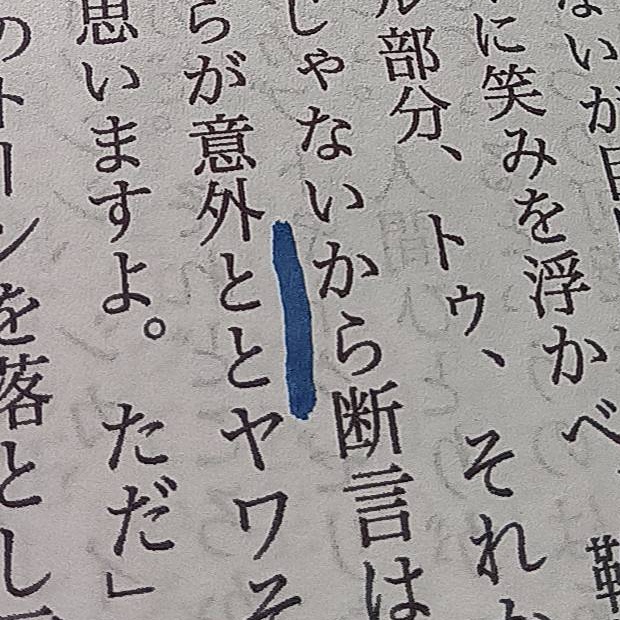 ないが
に笑みを浮かべ
部分、トゥ、それ
じゃないから断言は
らが意外ととヤワそ
思いますよ。ただ」
のトーンを落とし